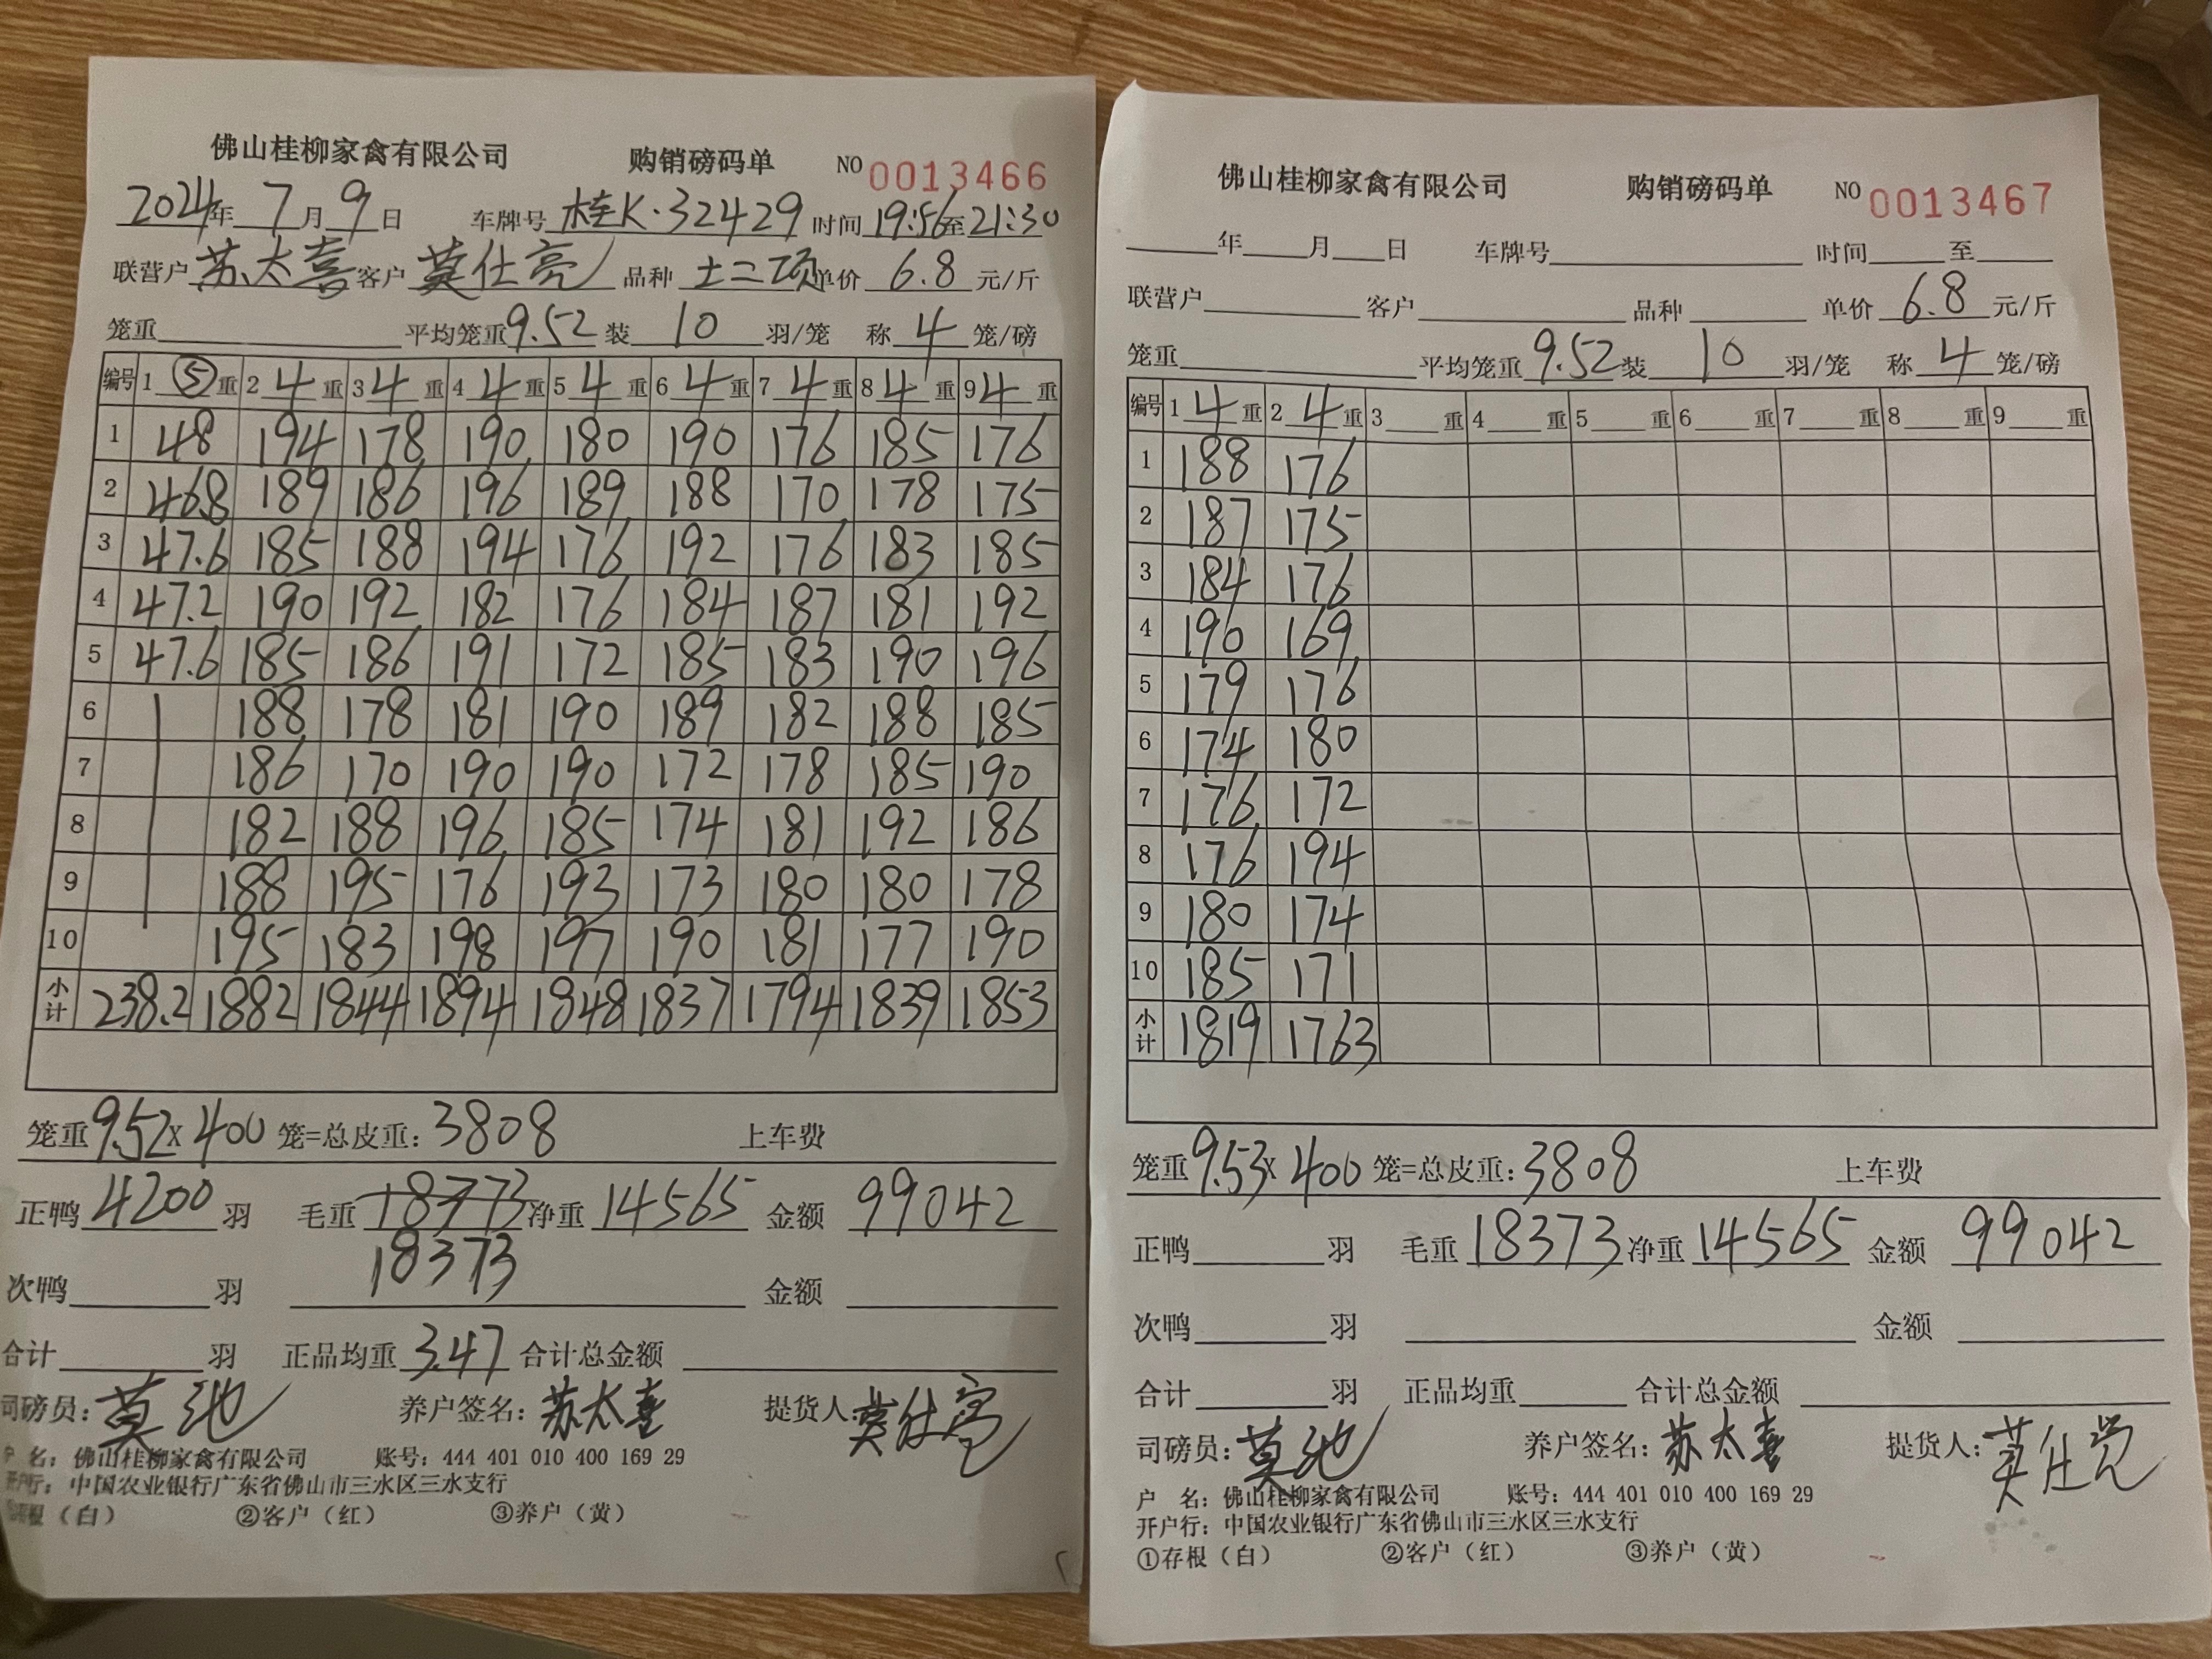 佛山桂柳家禽有限公司 购销磅码单 NO 0013466
2024年 7月 9日 车牌号 桂K·32429 时间 19:56至21:30
联营户 苏太喜 客户 莫仕亮 品种 土二项 单价 6.8 元/斤
笼重 平均笼重 9.52 装 10 羽/笼 称 4 笼/磅
编号 1 ⑤ 重 2 4 重 3 4 重 4 4 重 5 4 重 6 4 重 7 4 重 8 4 重 9 4 重
1 48 194 178 190 180 190 176 185 176
2 46.8 189 186 196 189 188 170 178 175
3 47.6 185 188 194 176 192 176 183 185
4 47.2 190 192 182 176 184 187 181 192
5 47.6 185 186 191 172 185 183 190 196
6 188 178 181 190 189 182 188 185
7 186 170 190 190 172 178 185 190
8 182 188 196 185 174 181 192 186
9 188 195 176 193 173 180 180 178
10 195 183 198 197 190 181 177 190
小计 238.2 1882 1844 1894 1848 1837 1794 1839 1853
笼重 9.52 x 400 笼=总皮重: 3808 上车费
正鸭 4200 羽 毛重 18773 净重 14565 金额 99042
18373
次鸭 羽 金额
合计 羽 正品均重 3.47 合计总金额
司磅员: 莫池 养户签名: 苏太喜 提货人: 莫仕亮
户 名: 佛山桂柳家禽有限公司 账号: 444 401 010 400 169 29
开户行: 中国农业银行广东省佛山市三水区三水支行
存根（白） ②客户（红） ③养户（黄）
佛山桂柳家禽有限公司 购销磅码单 NO 0013467
年 月 日 车牌号 时间 至
联营户 客户 品种 单价 6.8 元/斤
笼重 平均笼重 9.52 装 10 羽/笼 称 4 笼/磅
编号 1 4 重 2 4 重 3 重 4 重 5 重 6 重 7 重 8 重 9 重
1 188 176
2 187 175
3 184 176
4 190 169
5 179 176
6 174 180
7 176 172
8 176 194
9 180 174
10 185 171
小计 1819 1763
笼重 9.53 x 400 笼=总皮重: 3808 上车费
正鸭 羽 毛重 18373 净重 14565 金额 99042
次鸭 羽 金额
合计 羽 正品均重 合计总金额
司磅员: 莫池 养户签名: 苏太喜 提货人: 莫仕亮
户 名: 佛山桂柳家禽有限公司 账号: 444 401 010 400 169 29
开户行: 中国农业银行广东省佛山市三水区三水支行
①存根（白） ②客户（红） ③养户（黄）